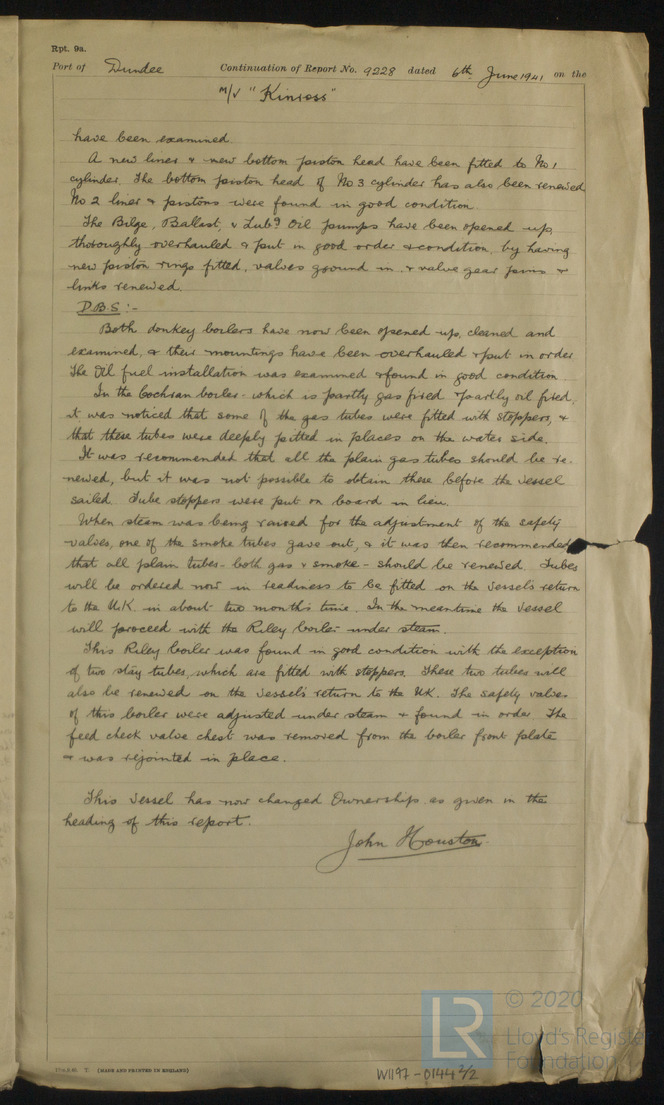 Rpt. 9a.
Port of Dundee Continuation of Report No. 9228 dated 6th June 1941 on the
M/V "Kinross"
have been examined.
A new liner & new bottom piston head have been fitted to No 1
cylinder. The bottom piston head of No 3 cylinder has also been renewed
No 2 liner & pistons were found in good condition.
The Bilge, Ballast, & Lubg Oil pumps have been opened up,
thoroughly overhauled & put in good order & condition, by having
new piston rings fitted, valves ground in, & valve gear pins &
links renewed.
D.B.S :-
Both donkey boilers have now been opened up, cleaned and
examined, & their mountings have been overhauled & put in order
The Oil fuel installation was examined & found in good condition
In the Cochran boiler - which is partly gas fired & partly oil fired,
it was noticed that some of the gas tubes were fitted with stoppers, &
that these tubes were deeply pitted in places on the water side.
It was recommended that all the plain gas tubes should be re-
newed, but it was not possible to obtain these before the vessel
sailed. Tube stoppers were put on board in lieu.
When steam was being raised for the adjustment of the safety
valves, one of the smoke tubes gave out, & it was then recommended
that all plain tubes - both gas & smoke - should be renewed. Tubes
will be ordered now in readiness to be fitted on the vessel's return
to the U.K. in about two months time. In the meantime the vessel
will proceed with the Riley boiler under steam.
This Riley boiler was found in good condition with the exception
of two stay tubes, which are fitted with stoppers. These two tubes will
also be renewed on the vessel's return to the UK. The safety valves
of this boiler were adjusted under steam & found in order. The
feed check valve chest was removed from the boiler front plate
& was rejointed in place.
This vessel has now changed Ownerships, as given in the
heading of this report.
John Houston
© 2020
LR
Lloyd's Register
Foundation
(MADE AND PRINTED IN ENGLAND)
W1197-0144 2/2